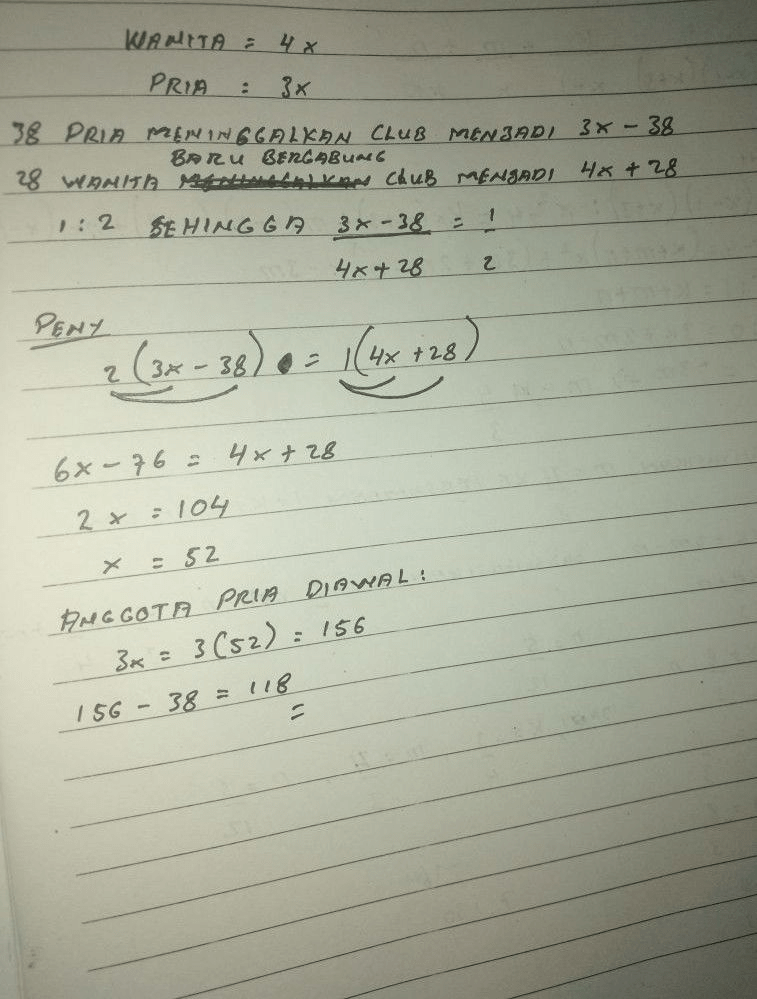 WANITA = 4x
PRIA : 3x
38 PRIA MENINGGALKAN CLUB MENJADI 3x - 38
BARU BERGABUNG
28 WANITA CLUB MENJADI 4x + 28
1 : 2 SEHINGGA 3x - 38 = 1
4x + 28 2
PENY
2 (3x - 38) = 1 (4x + 28)
6x - 76 = 4x + 28
2x = 104
x = 52
ANGGOTA PRIA DIAWAL :
3x = 3(52) = 156
156 - 38 = 118
=